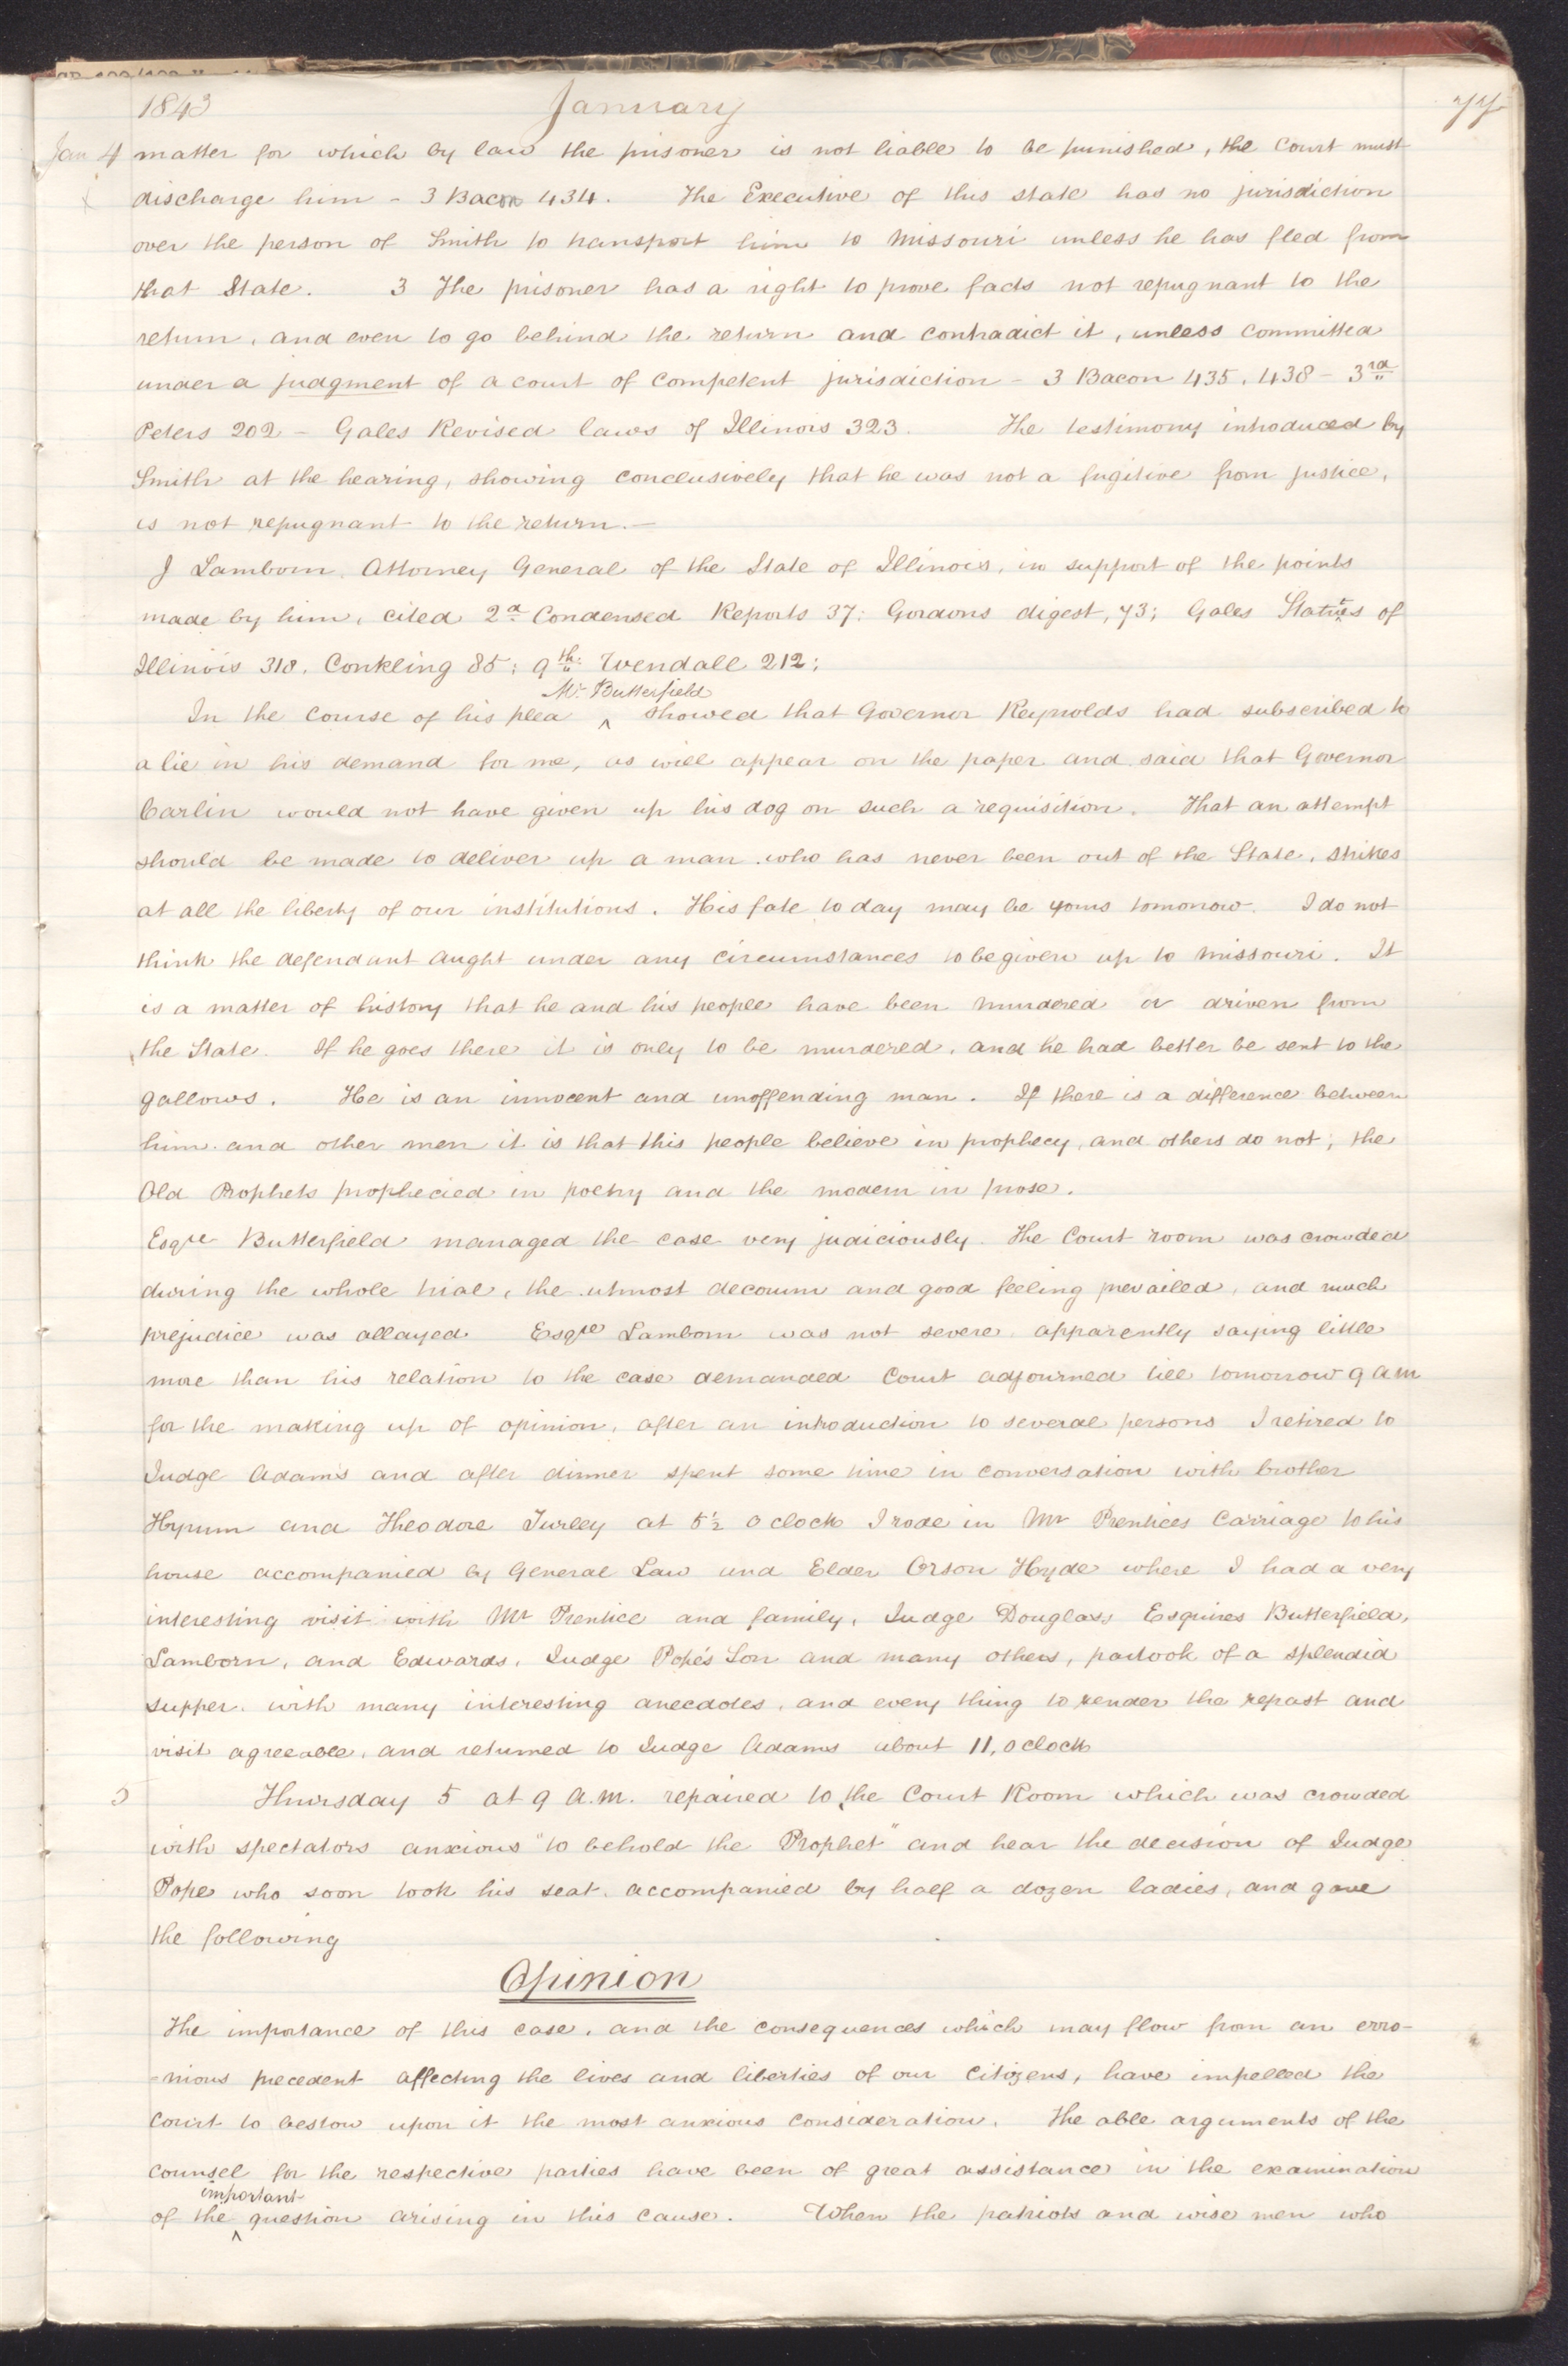 1843 January 77
Jan 4 matter for which by law the prisoner is not liable to be punished, the Court must
discharge him - 3 Bacon 434. The Executive of this state has no jurisdiction
over the person of Smith to transport him to Missouri unless he has fled from
that State. 3 The prisoner has a right to prove facts not repugnant to the
return, and even to go behind the return and contradict it, unless committed
under a judgment of a court of competent jurisdiction - 3 Bacon 435, 438 - 3rd
Peters 202 - Gales Revised laws of Illinois 323. The testimony introduced by
Smith at the hearing, showing conclusively that he was not a fugitive from justice,
is not repugnant to the return.—
J Lamborn, Attorney General of the State of Illinois, in support of the points
made by him, cited 2d Condensed Reports 37; Gordons digest, 73; Gales Statutes of
Illinois 318. Conkling 85; 9th Wendall 212;
In the course of his plea ^ Mr. Butterfield showed that Governor Reynolds had subscribed to
a lie in his demand for me, as will appear on the paper and said that Governor
Carlin would not have given up his dog on such a requisition. That an attempt
should be made to deliver up a man who has never been out of the State, strikes
at all the liberty of our institutions. His fate to day may be yours tomorrow. I do not
think the defendant aught under any circumstances to be given up to Missouri. It
is a matter of history that he and his people have been murdered or driven from
the State. If he goes there it is only to be murdered, and he had better be sent to the
gallows. He is an innocent and unoffending man. If there is a difference between
him and other men it is that this people believe in prophecy, and others do not; the
Old Prophets prophecied in poetry and the modern in prose.
Esqre Butterfield managed the case very judiciously. The Court room was crowded
during the whole trial, the utmost decorum and good feeling prevailed, and much
prejudice was allayed Esqre Lamborn was not severe apparently saying little
more than his relation to the case demanded Court adjourned till tomorrow 9 am
for the making up of opinion, after an introduction to several persons I retired to
Judge Adams and after dinner spent some time in conversation with brother
Hyrum and Theodore Turley at 5½ o clock I rode in Mr Prentices Carriage to his
house accompanied by General Law and Elder Orson Hyde where I had a very
interesting visit with Mr Prentice and family, Judge Douglass Esquires Butterfield,
Lamborn, and Edwards, Judge Pope's Son and many others, partook of a splendid
supper, with many interesting anecdotes, and every thing to render the repast and
visit agreeable, and returned to Judge Adams about 11, o clock
5 Thursday 5 at 9 A.M. repaired to the Court Room which was crowded
with spectators anxious "to behold the Prophet" and hear the decision of Judge
Pope who soon took his seat, accompanied by half a dozen ladies, and gave
the following
Opinion
The importance of this case, and the consequences which may flow from an erro-
=nious precedent affecting the lives and liberties of our Citizens, have impelled the
Court to bestow upon it the most anxious consideration. The able arguments of the
counsel for the respective parties have been of great assistance in the examination
of the ^ important question arising in this cause. When the patriots and wise men who